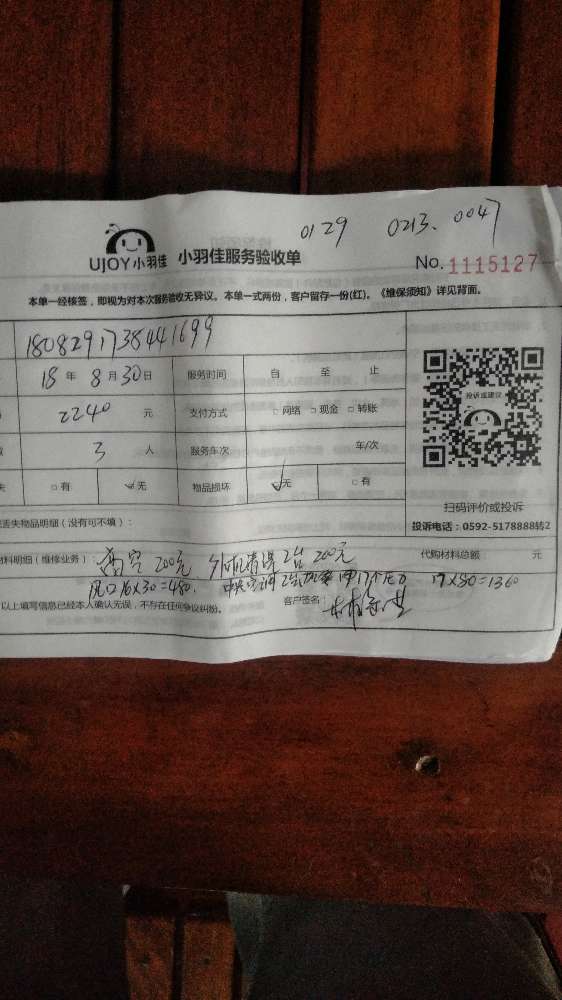 0129 0213. 0047
UJOY小羽佳 小羽佳服务验收单
No. 1115127
本单一经核签,即视为对本次服务验收无异议。本单一式两份,客户留存一份(红)。《维保须知》详见背面。
180829173844 1699
18 年 8 月 30 日 服务时间 自 至 止
2240 元 支付方式 □ 网络 □ 现金 □ 转账
投诉或建议
3 人 服务车次 车/次
□ 有 ✓无 物品损坏 ✓无 □ 有
扫码评价或投诉
丢失物品明细(没有可不填):
投诉电话:0592-5178888转2
材料明细(维修业务): 高空 200元 外机清洗2台 200元 代购材料总额 元
风口16×30=480. 中央空调 2台 17×80=1360
以上填写信息已经本人确认无误,不存在任何争议纠纷。 客户签名: